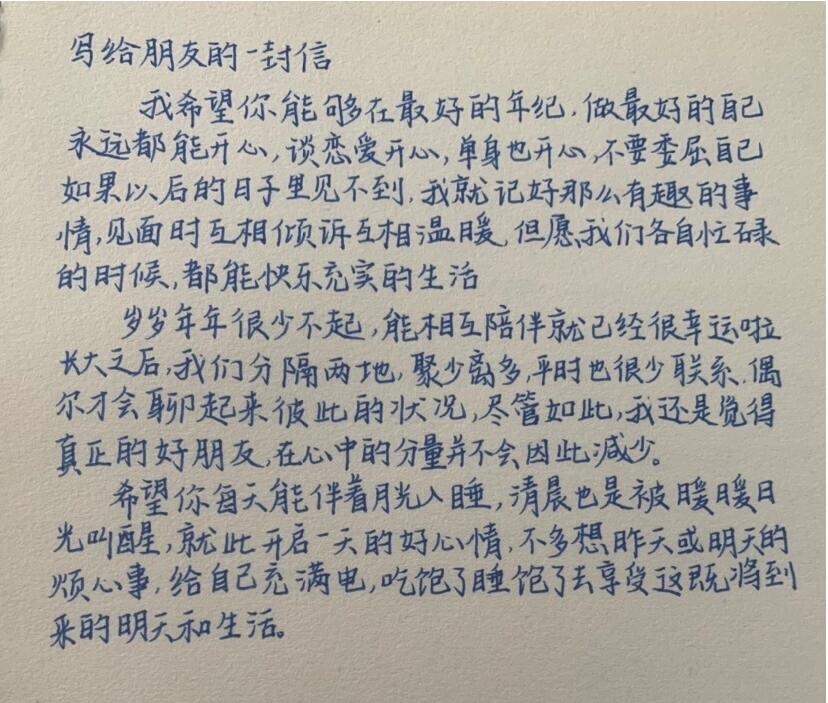 写给朋友的一封信
我希望你能够在最好的年纪,做最好的自己
永远都能开心,谈恋爱开心,单身也开心,不要委屈自己
如果以后的日子里见不到,我就记好那么有趣的事
情,见面时互相倾诉互相温暖,但愿我们各自忙碌
的时候,都能快乐充实的生活
岁岁年年很少不起,能相互陪伴就已经很幸运啦
长大之后,我们分隔两地,聚少离多,平时也很少联系,偶
尔才会聊起来彼此的状况,尽管如此,我还是觉得
真正的好朋友,在心中的分量并不会因此减少。
希望你每天能伴着月光入睡,清晨也是被暖暖日
光叫醒,就此开启一天的好心情,不多想昨天或明天的
烦心事,给自己充满电,吃饱了睡饱了去享受这既将到
来的明天和生活。